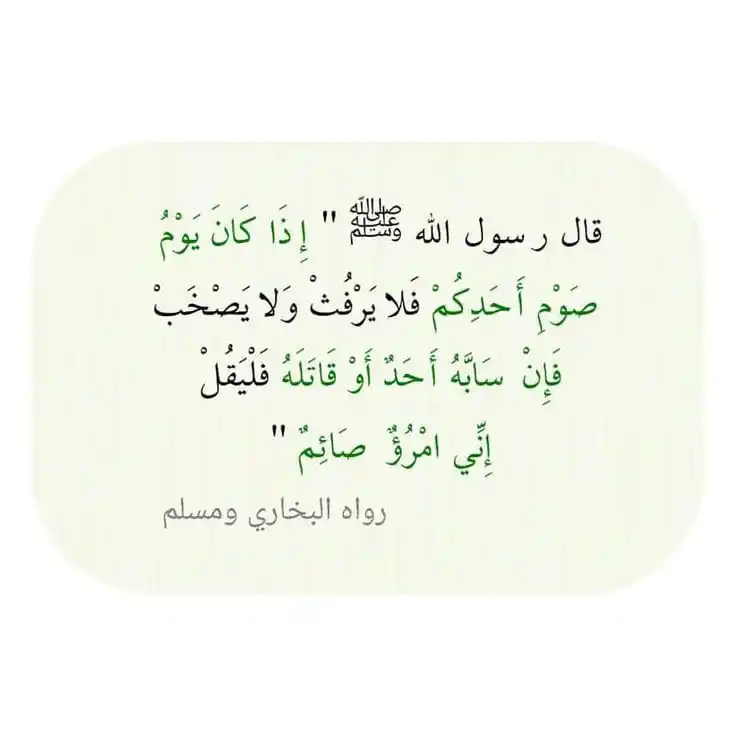 قال رسول الله ﷺ " إِذَا كَانَ يَوْمُ
صَوْمِ أَحَدِكُمْ فَلا يَرْفُثْ وَلا يَصْخَبْ
فَإِنْ سَابَّهُ أَحَدٌ أَوْ قَاتَلَهُ فَلْيَقُلْ
إِنِّي امْرُؤٌ صَائِمٌ "
رواه البخاري ومسلم